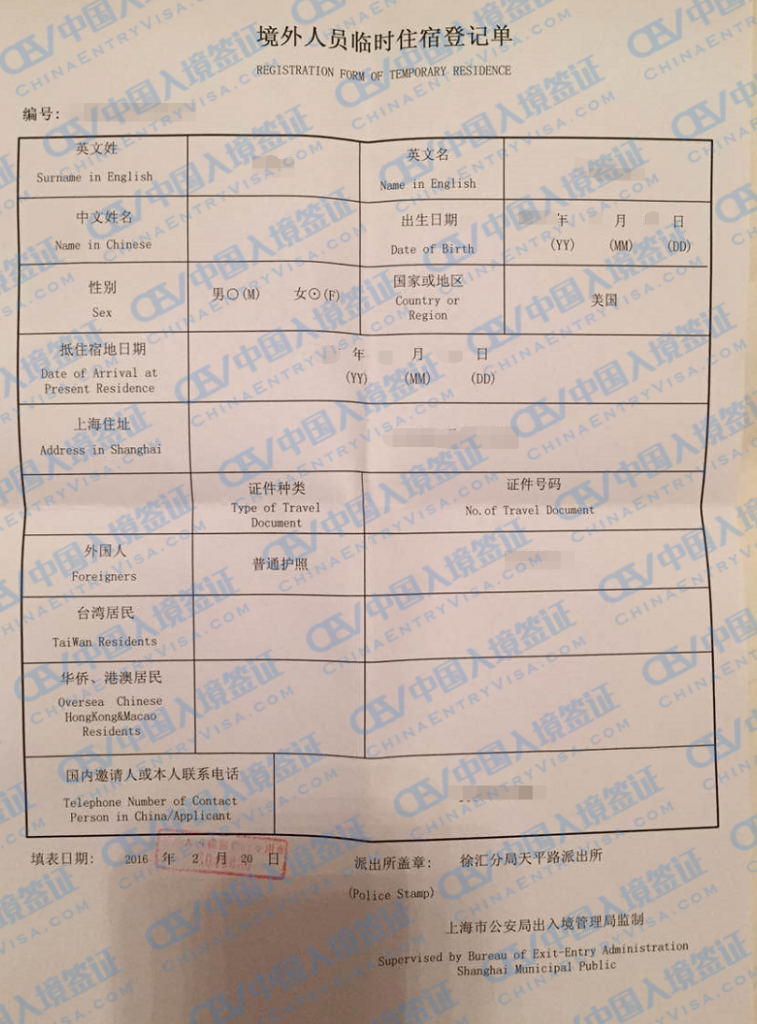 境外人员临时住宿登记单
REGISTRATION FORM OF TEMPORARY RESIDENCE
编号:
英文姓
Surname in English
英文名
Name in English
中文姓名
Name in Chinese
出生日期
Date of Birth
年 月 日
(YY) (MM) (DD)
性别
Sex
男○(M) 女⊙(F)
国家或地区
Country or
Region
美国
抵住宿地日期
Date of Arrival at
Present Residence
年 月 日
(YY) (MM) (DD)
上海住址
Address in Shanghai
证件种类
Type of Travel
Document
证件号码
No.of Travel Document
外国人
Foreigners
普通护照
台湾居民
TaiWan Residents
华侨、港澳居民
Oversea Chinese
HongKong&Macao
Residents
国内邀请人或本人联系电话
Telephone Number of Contact
Person in China/Applicant
填表日期: 2016 年 2 月 20 日
派出所盖章: 徐汇分局天平路派出所
(Police Stamp)
上海市公安局出入境管理局监制
Supervised by Bureau of Exit-Entry Administration
Shanghai Municipal Public
CEV中国入境签证
CHINAENTRYVISA.COM